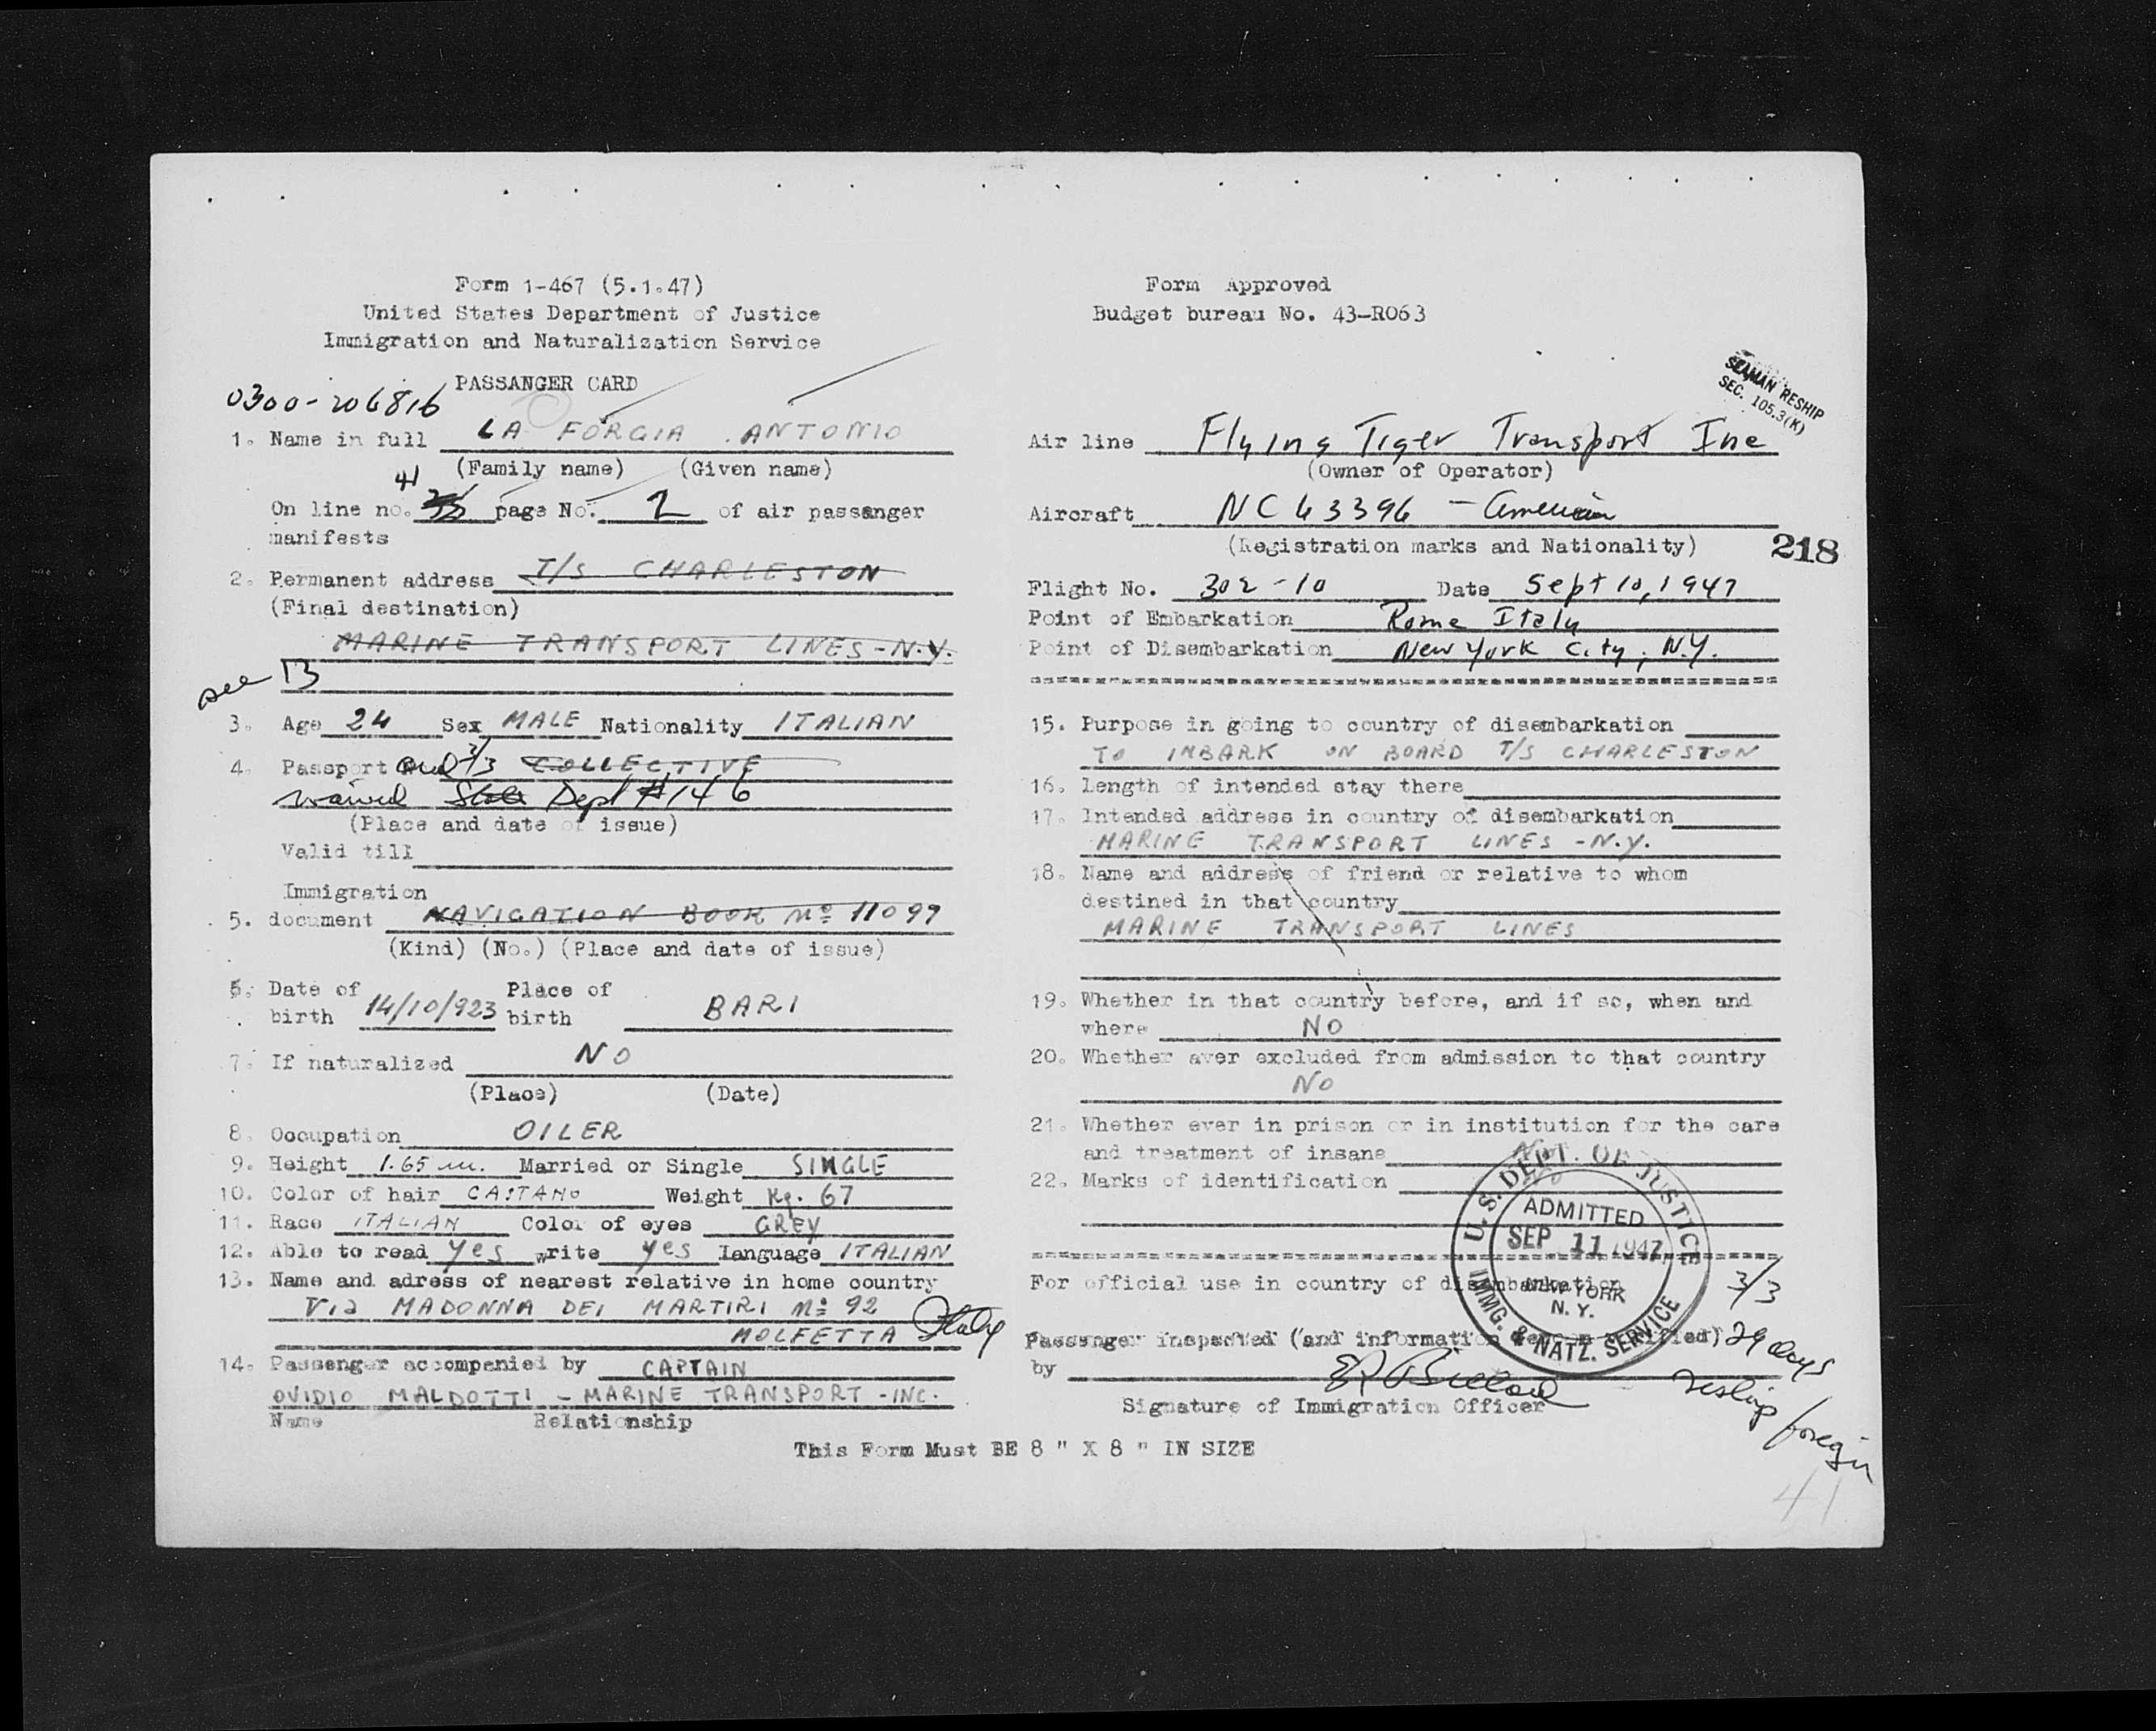 Form 1-467 (5.1.47)
United States Department of Justice
Immigration and Naturalization Service
PASSANGER CARD
0300-206816
1. Name in full LA FORGIA ANTONIO
(Family name) (Given name)
41
On line no. page No. 2 of air passanger
manifests
2. Permanent address T/S CHARLESTON
(Final destination)
MARINE TRANSPORT LINES-N.Y.
see 13
3. Age 24 Sex MALE Nationality ITALIAN
4. Passport and 3/3 COLLECTIVE
waived State Dept #146
(Place and date of issue)
Valid till
Immigration
5. document NAVIGATION BOOK Nº 11099
(Kind) (No.) (Place and date of issue)
6. Date of Place of
birth 14/10/923 birth BARI
7. If naturalized NO
(Place) (Date)
8. Occupation OILER
9. Height 1.65 m. Married or Single SINGLE
10. Color of hair CASTANO Weight Kg. 67
11. Race ITALIAN Color of eyes GREY
12. Able to read yes write yes Language ITALIAN
13. Name and adress of nearest relative in home country
Via MADONNA DEI MARTIRI Nº 92
MOLFETTA Italy
14. Passenger accompenied by CAPTAIN
OVIDIO MALDOTTI - MARINE TRANSPORT - INC.
Name Relationship
Form Approved
Budget bureau No. 43-R063
SEAMAN RESHIP
SEC. 105.3(K)
Air line Flying Tiger Transport Inc
(Owner of Operator)
Aircraft NC 43396 - American
(Registration marks and Nationality) 218
Flight No. 302-10 Date Sept 10, 1947
Point of Embarkation Rome Italy
Point of Disembarkation New York City, N.Y.
15. Purpose in going to country of disembarkation
TO IMBARK ON BOARD T/S CHARLESTON
16. Length of intended stay there
17. Intended address in country of disembarkation
MARINE TRANSPORT LINES - N.Y.
18. Name and address of friend or relative to whom
destined in that country
MARINE TRANSPORT LINES
19. Whether in that country before, and if so, when and
where NO
20. Whether aver excluded from admission to that country
NO
21. Whether ever in prison or in institution for the care
and treatment of insane No
22. Marks of identification No
U.S. DEPT. OF JUSTICE
ADMITTED
SEP 11 1947
NEW YORK
N. Y.
IMMG. & NATZ. SERVICE
For official use in country of disembarkation 3/3
Passenger inspected (and information verified) 29 days
by reship foreign
Signature of Immigration Officer
This Form Must BE 8 " X 8 " IN SIZE
41